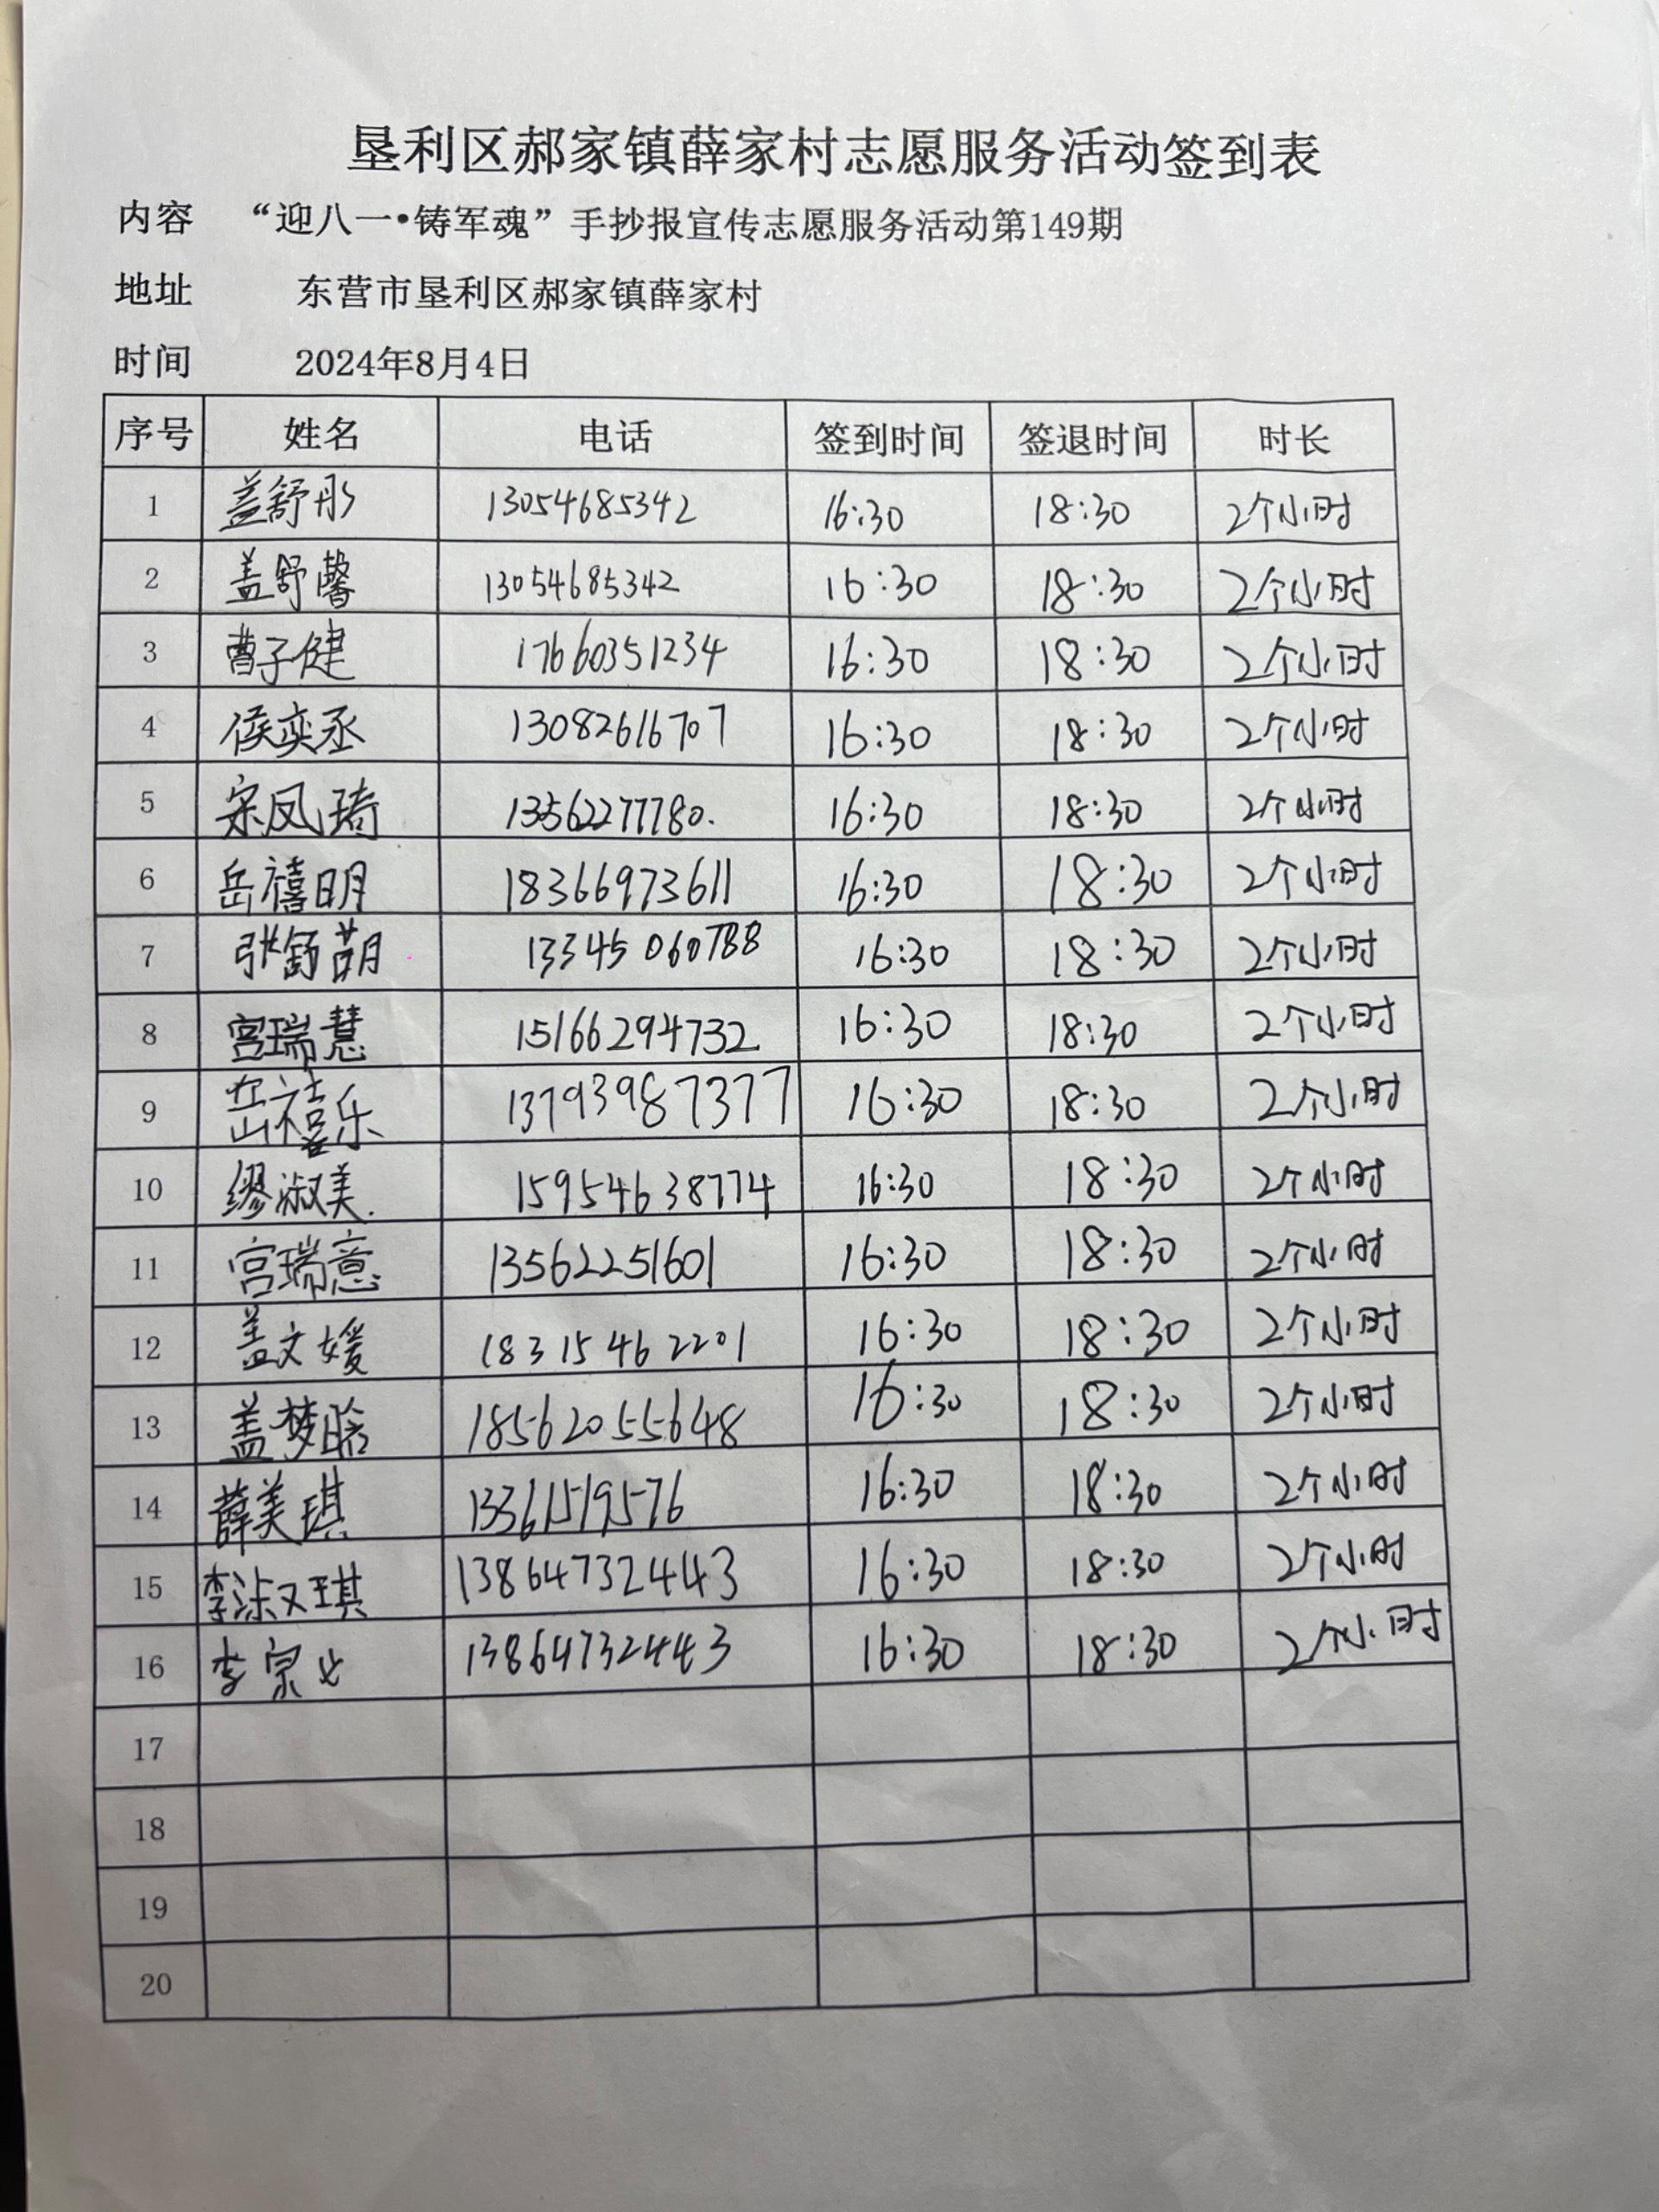 垦利区郝家镇薛家村志愿服务活动签到表
内容 “迎八一•铸军魂”手抄报宣传志愿服务活动第149期
地址 东营市垦利区郝家镇薛家村
时间 2024年8月4日
序号 姓名 电话 签到时间 签退时间 时长
1 盖舒彤 13054685342 16:30 18:30 2个小时
2 盖舒馨 13054685342 16:30 18:30 2个小时
3 曹子健 17660351234 16:30 18:30 2个小时
4 侯奕丞 13082616707 16:30 18:30 2个小时
5 宋凤琦 13562277780. 16:30 18:30 2个小时
6 岳禧明 18366973611 16:30 18:30 2个小时
7 张舒萌 13345060788 16:30 18:30 2个小时
8 宫瑞慧 15166294732 16:30 18:30 2个小时
9 岳禧乐 13793987377 16:30 18:30 2个小时
10 缪淑美. 15954638774 16:30 18:30 2个小时
11 宫瑞意 13562251601 16:30 18:30 2个小时
12 盖文媛 18315462201 16:30 18:30 2个小时
13 盖梦晗 18562055648 16:30 18:30 2个小时
14 薛美琪 13361519576 16:30 18:30 2个小时
15 李 琪 13864732443 16:30 18:30 2个小时
16 李宗 13864732443 16:30 18:30 2个小时
17
18
19
20